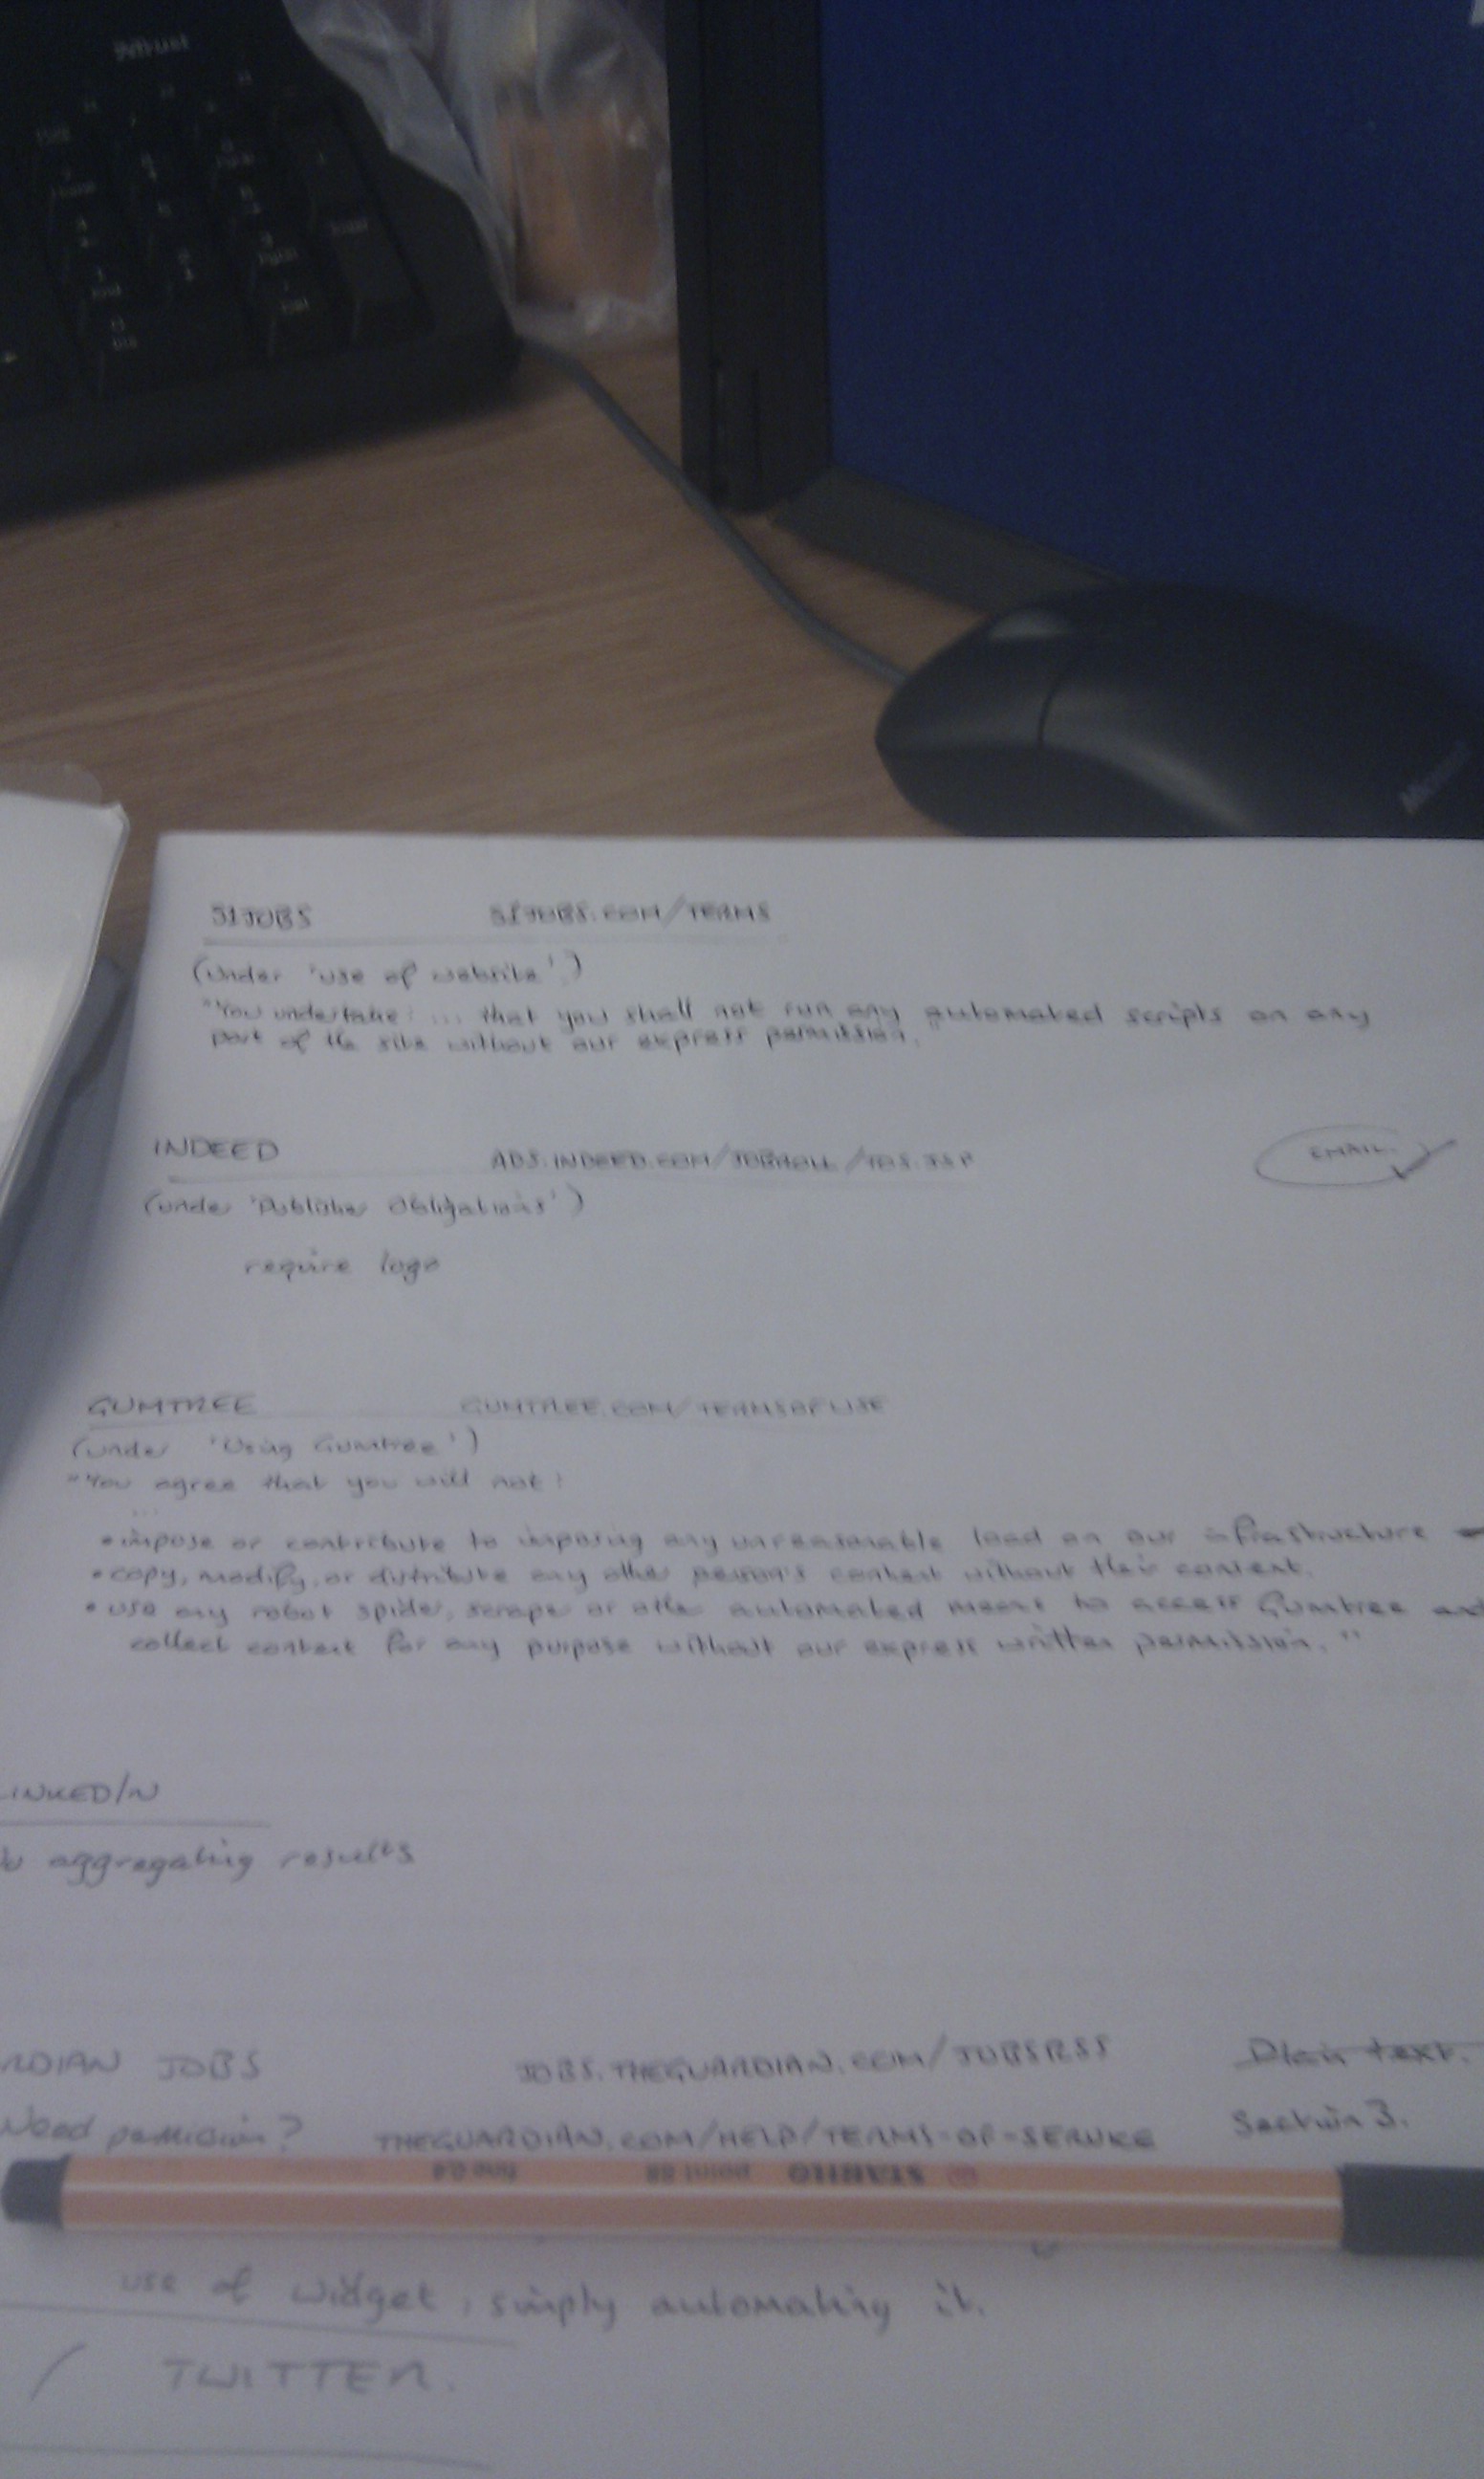 Trust
Home
Enter
PgDn
End
Ins
Del
Microsoft
S1JOBS S1JOBS.COM/TERMS
(under 'use of website')
"You undertake: ... that you shall not run any automated scripts on any
part of the site without our express permission.
INDEED ADS.INDEED.COM/JOBROLL/TOS.JSP EMAIL
(under 'Publisher Obligations')
require logo
GUMTREE GUMTREE.COM/TERMSOFUSE
(under 'Using Gumtree')
"You agree that you will not:
...
• impose or contribute to imposing any unreasonable load on our infrastructure
• copy, modify, or distribute any other person's content without their consent.
• use any robot spider, scraper or other automated means to access Gumtree and
collect content for any purpose without our express written permission."
LINKEDIN
aggregating results
RDIAN JOBS JOBS.THEGUARDIAN.COM/JOBSRSS Plain text.
Need permission? THEGUARDIAN.COM/HELP/TERMS-OF-SERVICE Section 3.
STABILO point 88 fine 0.4
use of widget, simply automating it.
/ TWITTER.